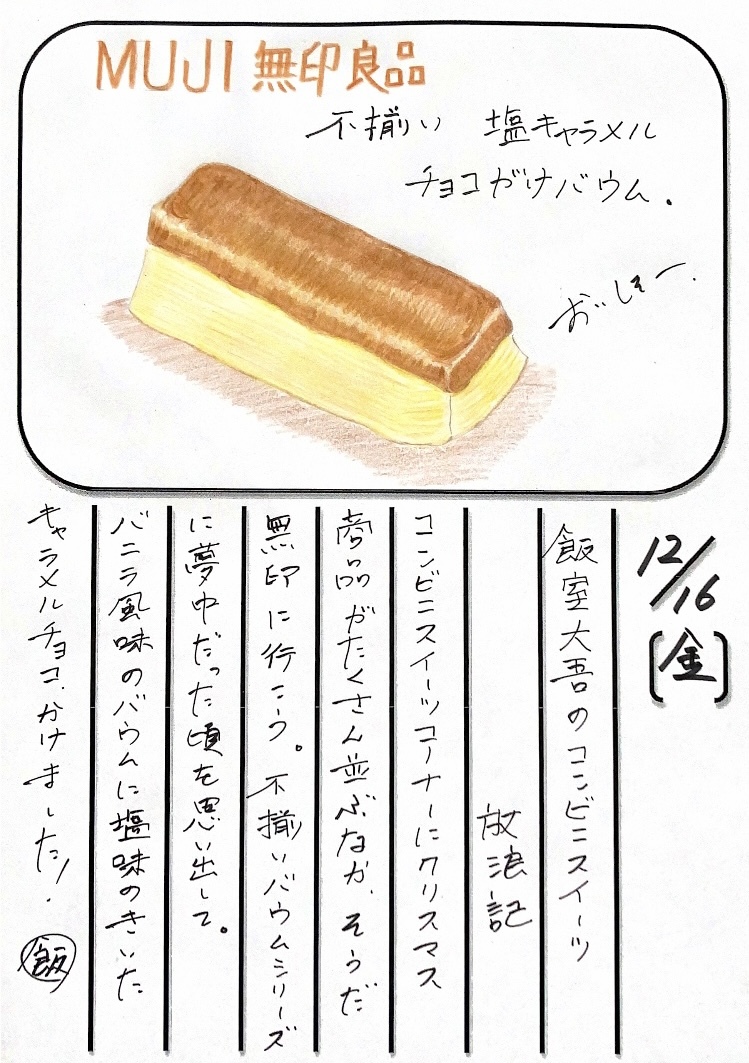 MUJI 無印良品
不揃い 塩キャラメル
チョコがけバウム.
おいしそー.
12/16
[金]
飯室大吾のコンビニスイーツ
放浪記
コンビニスイーツコーナーにクリスマス
商品がたくさん並ぶなか、そうだ
無印に行こう。不揃いバウムシリーズ
に夢中だった頃を思い出して。
バニラ風味のバウムに塩味のきいた
キャラメルチョコ、かけました!.
飯